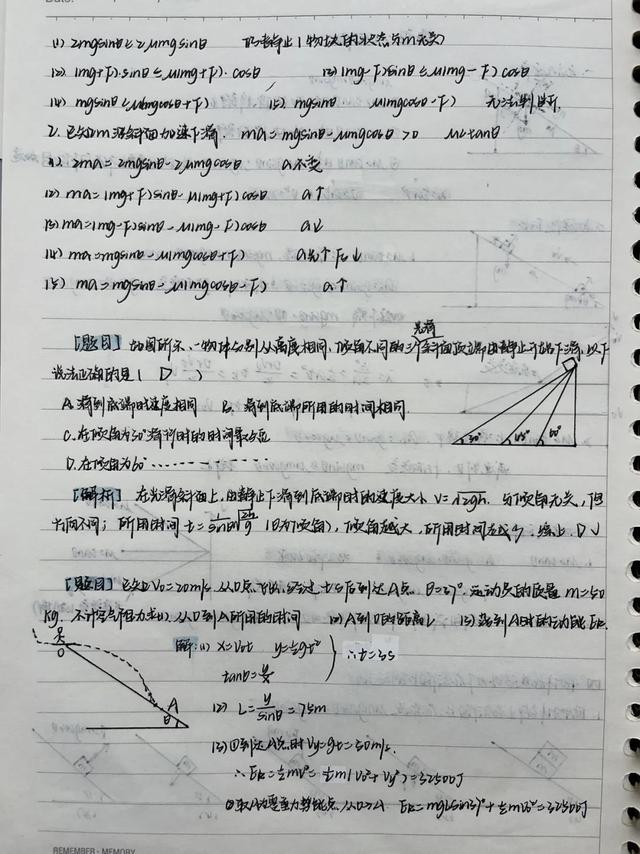 (1) 2mgsinθ ≤ 2μmgsinθ 仍静止(物块的状态与m无关)
(2) (mg+F)·sinθ ≤ μ(mg+F)·cosθ (3) (mg-F)sinθ ≤ μ(mg-F)cosθ
(4) mgsinθ ≤ μ(mgcosθ+F) (5) mgsinθ μ(mgcosθ-F) 无法判断
2. 已知m沿斜面加速下滑. ma = mgsinθ-μmgcosθ >0 μ<tanθ
(1) 2ma = 2mgsinθ-2μmgcosθ a不变
(2) ma = (mg+F)sinθ-μ(mg+F)cosθ a↑
(3) ma = (mg-F)sinθ-μ(mg-F)cosθ a↓
(4) ma = mgsinθ-μ(mgcosθ+F)
(5) ma = mgsinθ-μ(mgcosθ-F) a↑
光滑
[题目] 如图所示,一物体分别从高度相同、倾角不同的三个斜面顶端由静止开始下滑,以下
说法正确的是( D )
A. 滑到底端时速度相同 B. 滑到底端所用的时间相同
C. 在倾角为30°滑行时的时间最短
D. 在倾角为60° ··············
30° 45° 60°
[解析] 在光滑斜面上,由静止下滑到底端时的速度大小 V=√2gh, 与倾角无关,但
方向不同; 所用时间 t=1/sinθ √2h/g (θ为倾角), 倾角越大,所用时间越少, 综上, D√
[题目] 已知V₀=20m/s, 从O点飞出, 经过t s后到达A点, θ=37°, 运动员的质量 m=50
kg. 不计空气阻力求(1)从O到A所用的时间 (2) A到O的距离L (3) 落到A时的动能Ek.
O A θ
解: (1) x=V₀t y=½gt²
tanθ=y/x ∴t=3s
(2) L=y/sinθ=75m
(3) ①到达A点时 Vy=gt=30m/s.
∴Ek=½mV²=½m(V₀²+Vy²)=32500J
②取A为重力势能点, 从O→A Ek=mgLsin37°+½mV₀²=32500J
REMEMBER · MEMORY